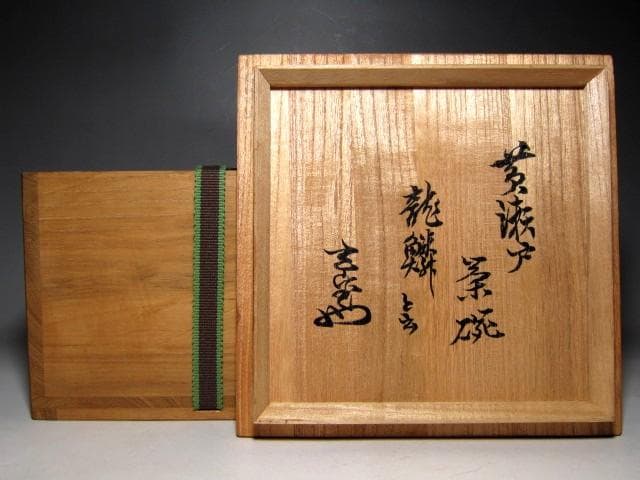 黄瀬戸
茶碗
龍鱗
と云